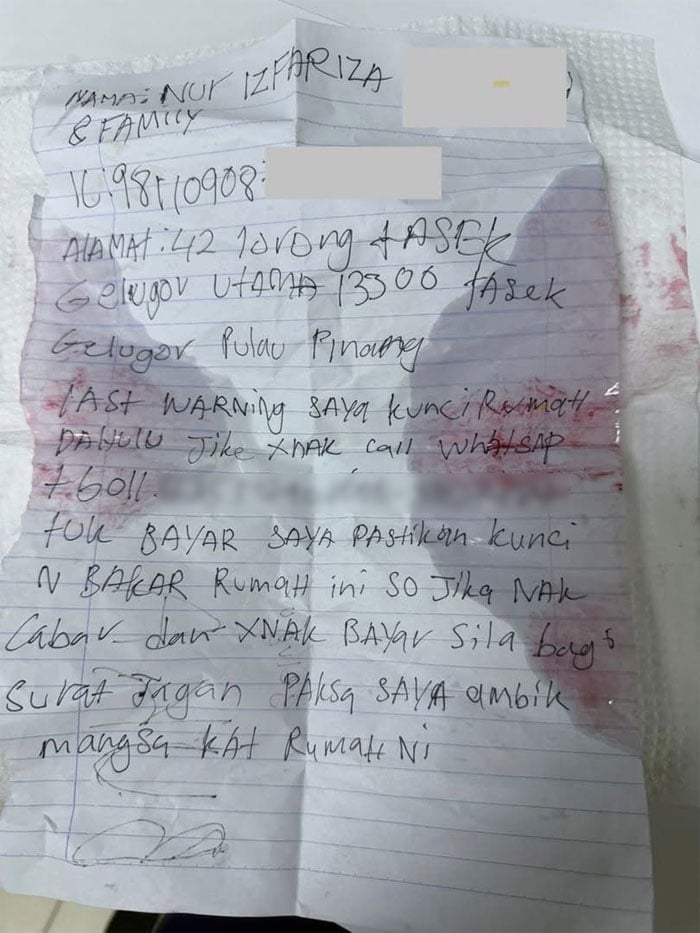 NAMA: NUR IZFARIZA
& FAMILY
IC: 98110908
ALAMAT: 42 lorong tASEK
Gelugor UtAMA 13300 tAsek
Gelugor Pulau Pinang
lASt WARNing SAYA kunci RumaH
DAHULU Jike XNAK call WhatSAP
+6011
tUk BAYAR SAYA PAStikan kunci
N BAKAR RumaH ini SO Jika NAK
Cabar dan XNAK BAYAR Sila bag
surat Jagan PAksa SAYA ambik
mangsa KAt RumaH Ni